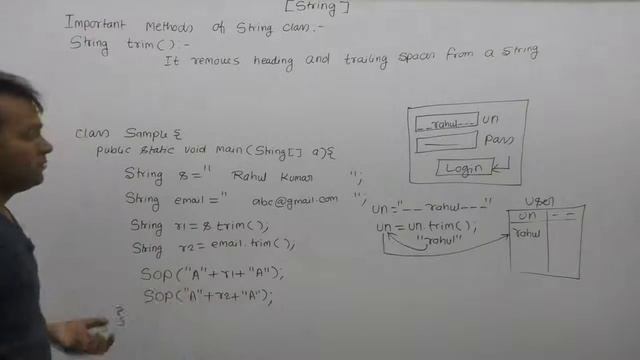 [String]
Important Methods of String class:-
String trim():-
It removes heading and trailing spaces from a string
class Sample{
public static void main(String[] a){
String s=" Rahul Kumar ";
String email=" abc@gmail.com ";
String r1=s.trim();
String r2=email.trim();
SOP("A"+r1+"A");
SOP("A"+r2+"A");
}
}
__rahul--- un
Pass
Login
un="__rahul---"
un=un.trim();
"rahul"
user
un
rahul